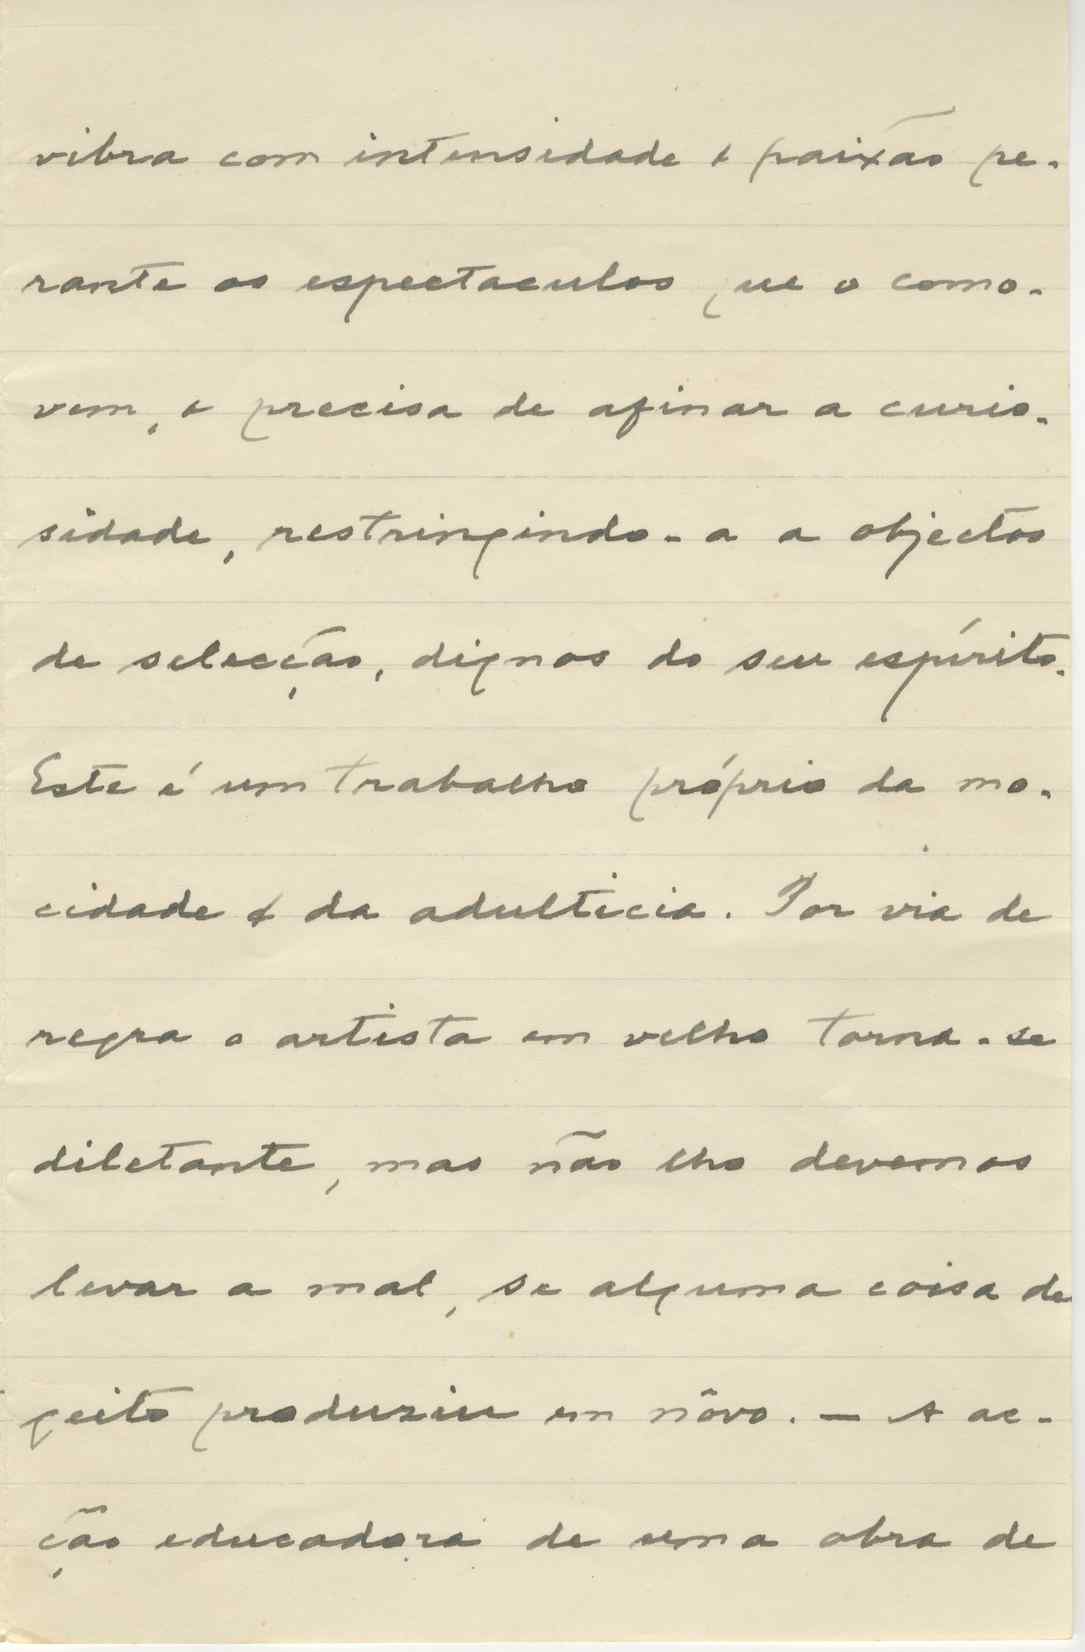 vibra com intensidade e paixão pe-
rante os espectaculos que o como-
vem, e precisa de afinar a curio-
sidade, restringindo-a a objectos
de selecção, dignos do seu espírito.
Este é um trabalho próprio da mo-
cidade e da adulticia. Por via de
regra o artista em velho torna-se
diletante, mas não lho devemos
levar a mal, se alguma coisa de
geito produziu em nôvo. — A ac-
ção educadora de uma obra de